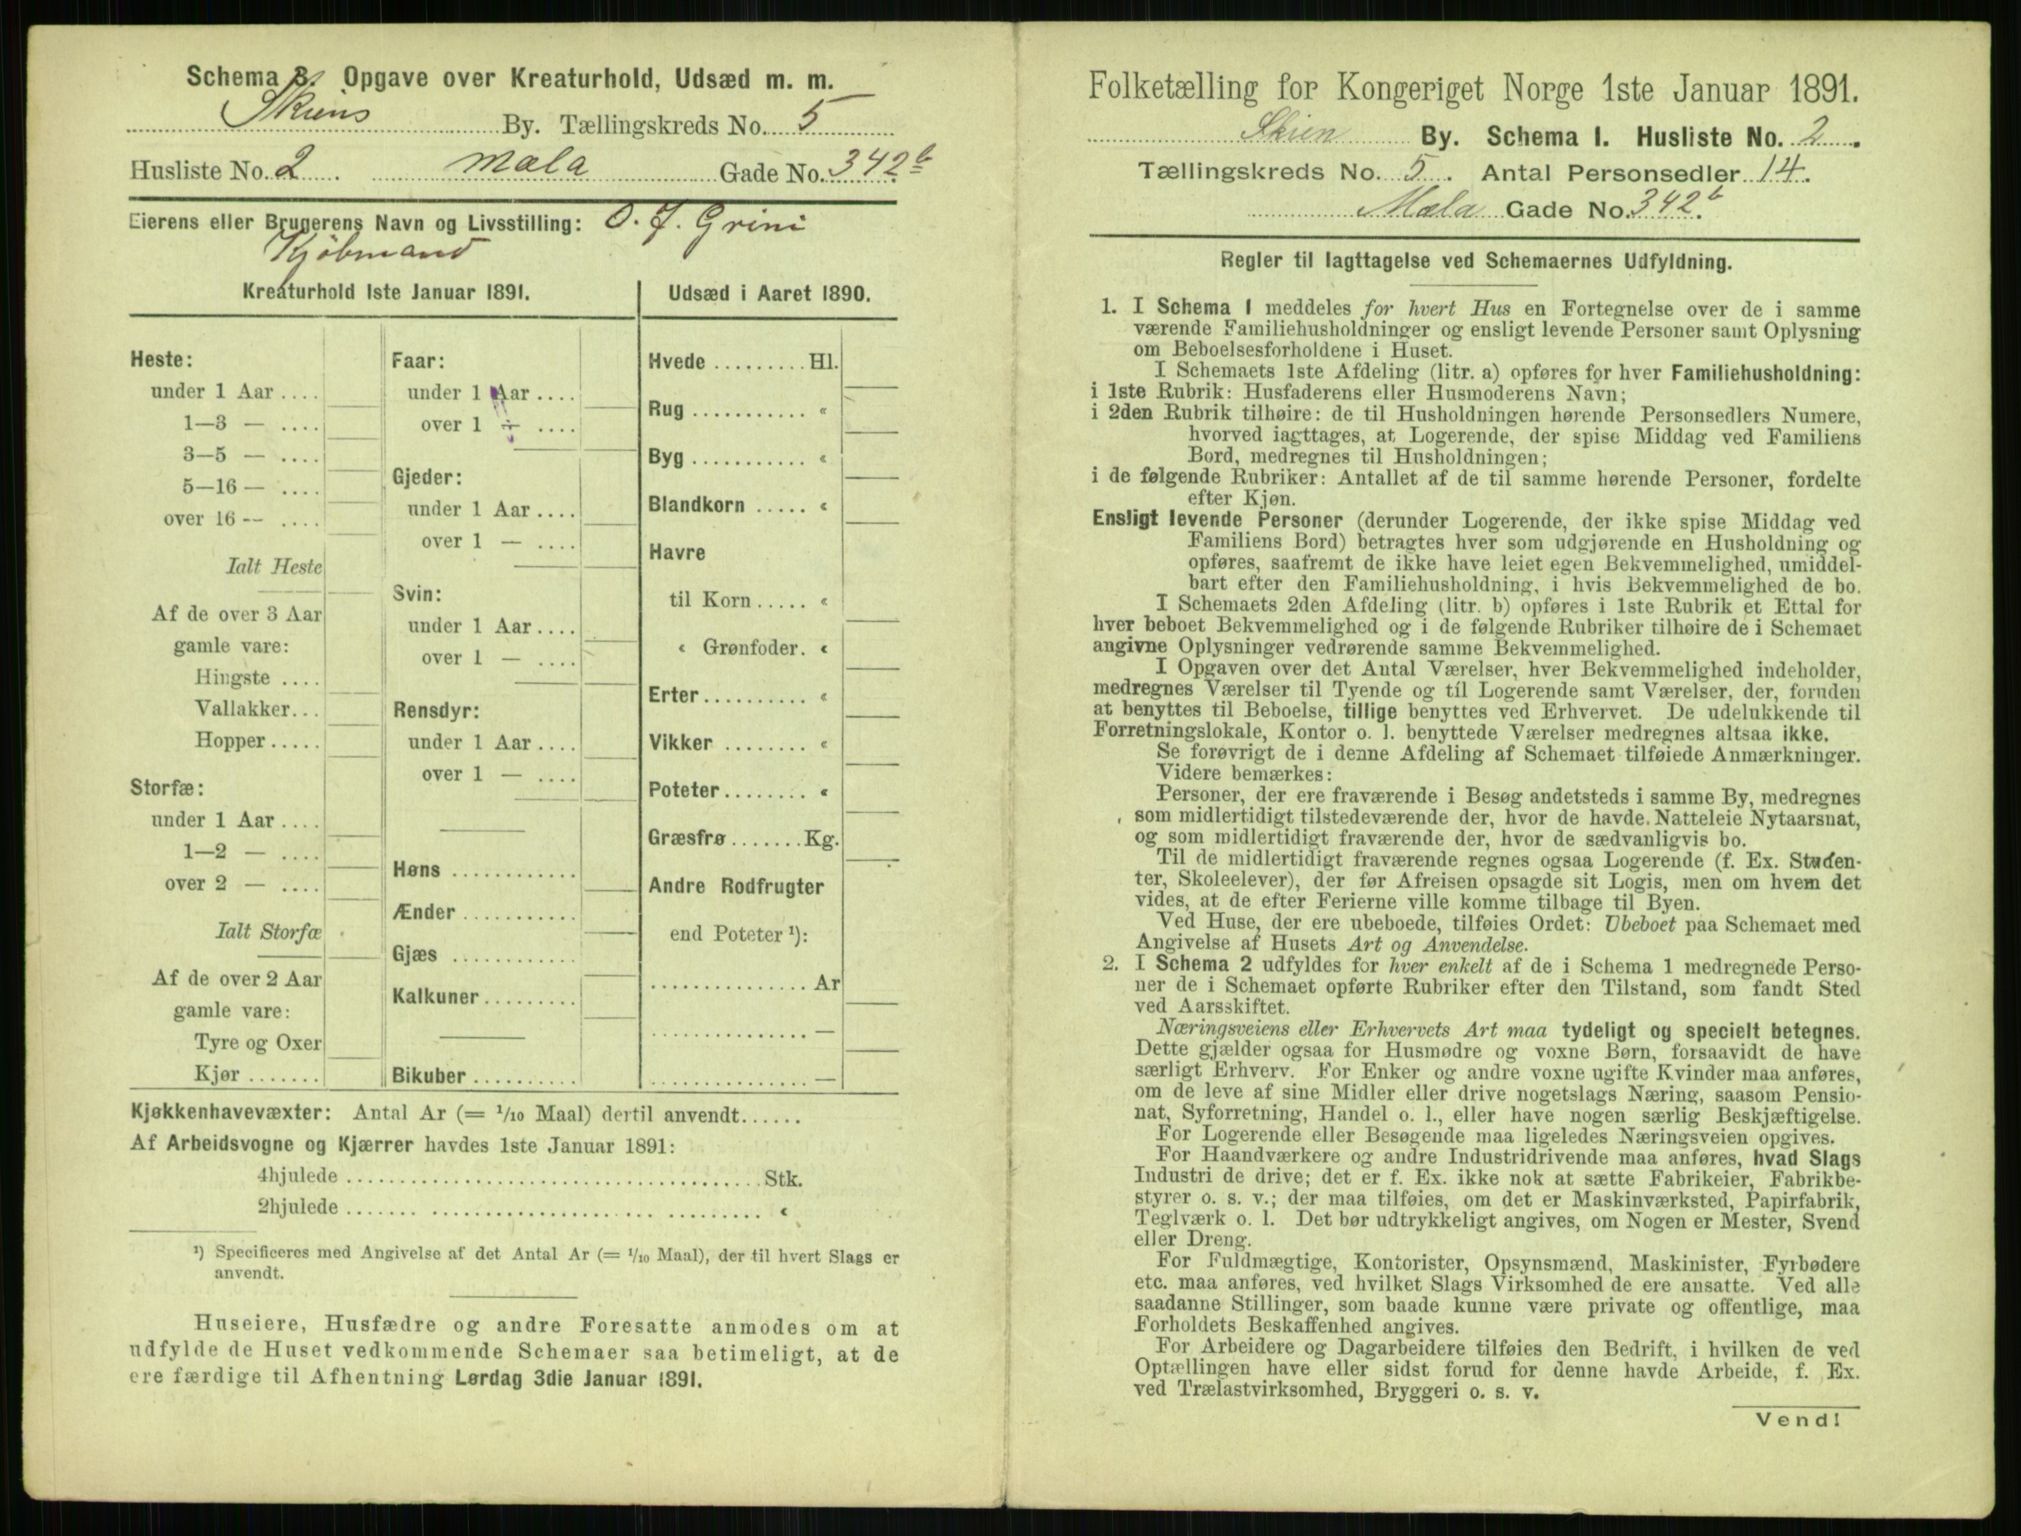 Schema 3. Opgave over Kreaturhold, Udsæd m. m.
Skiens By. Tællingskreds No. 5
Husliste No. 2. Mæla Gade No. 342b
Eierens eller Brugerens Navn og Livsstilling: O. J. Grini
Kjøbmand
Kreaturhold 1ste Januar 1891.
Heste:
under 1 Aar ....
1—3 — ....
3—5 — ....
5—16 — ....
over 16 — ....
Ialt Heste
Af de over 3 Aar
gamle vare:
Hingste ....
Vallakker...
Hopper.....
Storfæ:
under 1 Aar ....
1—2 — ....
over 2 — ....
Ialt Storfæ
Af de over 2 Aar
gamle vare:
Tyre og Oxer
Kjør.......
Faar:
under 1 Aar ....
over 1 — ....
Gjeder:
under 1 Aar ....
over 1 — ....
Svin:
under 1 Aar....
over 1 — ....
Rensdyr:
under 1 Aar ....
over 1 — ....
Høns ............
Ænder ...........
Gjæs ............
Kalkuner.........
Bikuber ..........
Udsæd i Aaret 1890.
Hvede ......... Hl.
Rug ........... «
Byg ........... «
Blandkorn ..... «
Havre
til Korn ..... «
« Grønfoder. «
Erter.......... «
Vikker ........ «
Poteter........ «
Græsfrø .......Kg.
Andre Rodfrugter
end Poteter ¹):
............... Ar
............... —
............... —
Kjøkkenhavevæxter: Antal Ar (= 1/10 Maal) dertil anvendt......
Af Arbeidsvogne og Kjærrer havdes 1ste Januar 1891:
4hjulede ....................................... Stk.
2hjulede ....................................... «
¹) Specificeres med Angivelse af det Antal Ar (= 1/10 Maal), der til hvert Slags er
anvendt.
Huseiere, Husfædre og andre Foresatte anmodes om at
udfylde de Huset vedkommende Schemaer saa betimeligt, at de
ere færdige til Afhentning Lørdag 3die Januar 1891.
Folketælling for Kongeriget Norge 1ste Januar 1891.
Skien By. Schema 1. Husliste No. 2.
Tællingskreds No. 5. Antal Personsedler 14.
Mæla Gade No. 342b.
Regler til Iagttagelse ved Schemaernes Udfyldning.
1. I Schema 1 meddeles for hvert Hus en Fortegnelse over de i samme
værende Familiehusholdninger og ensligt levende Personer samt Oplysning
om Beboelsesforholdene i Huset.
I Schemaets 1ste Afdeling (litr. a) opføres for hver Familiehusholdning:
i 1ste Rubrik: Husfaderens eller Husmoderens Navn;
i 2den Rubrik tilhøire: de til Husholdningen hørende Personsedlers Numere,
hvorved iagttages, at Logerende, der spise Middag ved Familiens
Bord, medregnes til Husholdningen;
i de følgende Rubriker: Antallet af de til samme hørende Personer, fordelte
efter Kjøn.
Ensligt levende Personer (derunder Logerende, der ikke spise Middag ved
Familiens Bord) betragtes hver som udgjørende en Husholdning og
opføres, saafremt de ikke have leiet egen Bekvemmelighed, umiddel-
bart efter den Familiehusholdning, i hvis Bekvemmelighed de bo.
I Schemaets 2den Afdeling (litr. b) opføres i 1ste Rubrik et Ettal for
hver beboet Bekvemmelighed og i de følgende Rubriker tilhøire de i Schemaet
angivne Oplysninger vedrørende samme Bekvemmelighed.
I Opgaven over det Antal Værelser, hver Bekvemmelighed indeholder,
medregnes Værelser til Tyende og til Logerende samt Værelser, der, foruden
at benyttes til Beboelse, tillige benyttes ved Erhvervet. De udelukkende til
Forretningslokale, Kontor o. l. benyttede Værelser medregnes altsaa ikke.
Se forøvrigt de i denne Afdeling af Schemaet tilføiede Anmærkninger.
Videre bemærkes:
Personer, der ere fraværende i Besøg andetsteds i samme By, medregnes
som midlertidigt tilstedeværende der, hvor de havde Natteleie Nytaarsnat,
og som midlertidigt fraværende der, hvor de sædvanligvis bo.
Til de midlertidigt fraværende regnes ogsaa Logerende (f. Ex. Studen-
ter, Skoleelever), der før Afreisen opsagde sit Logis, men om hvem det
vides, at de efter Ferierne ville komme tilbage til Byen.
Ved Huse, der ere ubeboede, tilføies Ordet: Ubeboet paa Schemaet med
Angivelse af Husets Art og Anvendelse.
2. I Schema 2 udfyldes for hver enkelt af de i Schema 1 medregnede Perso-
ner de i Schemaet opførte Rubriker efter den Tilstand, som fandt Sted
ved Aarsskiftet.
Næringsveiens eller Erhvervets Art maa tydeligt og specielt betegnes.
Dette gjælder ogsaa for Husmødre og voxne Børn, forsaavidt de have
særligt Erhverv. For Enker og andre voxne ugifte Kvinder maa anføres,
om de leve af sine Midler eller drive nogetslags Næring, saasom Pensio-
nat, Syforretning, Handel o. l., eller have nogen særlig Beskjæftigelse.
For Logerende eller Besøgende maa ligeledes Næringsveien opgives.
For Haandværkere og andre Industridrivende maa anføres, hvad Slags
Industri de drive; det er f. Ex. ikke nok at sætte Fabrikeier, Fabrikbe-
styrer o. s. v.; der maa tilføies, om det er Maskinværksted, Papirfabrik,
Teglværk o. l. Det bør udtrykkeligt angives, om Nogen er Mester, Svend
eller Dreng.
For Fuldmægtige, Kontorister, Opsynsmænd, Maskinister, Fyrbødere
etc. maa anføres, ved hvilket Slags Virksomhed de ere ansatte. Ved alle
saadanne Stillinger, som baade kunne være private og offentlige, maa
Forholdets Beskaffenhed angives.
For Arbeidere og Dagarbeidere tilføies den Bedrift, i hvilken de ved
Optællingen have eller sidst forud for denne havde Arbeide, f. Ex.
ved Trælastvirksomhed, Bryggeri o. s. v.
Vend!